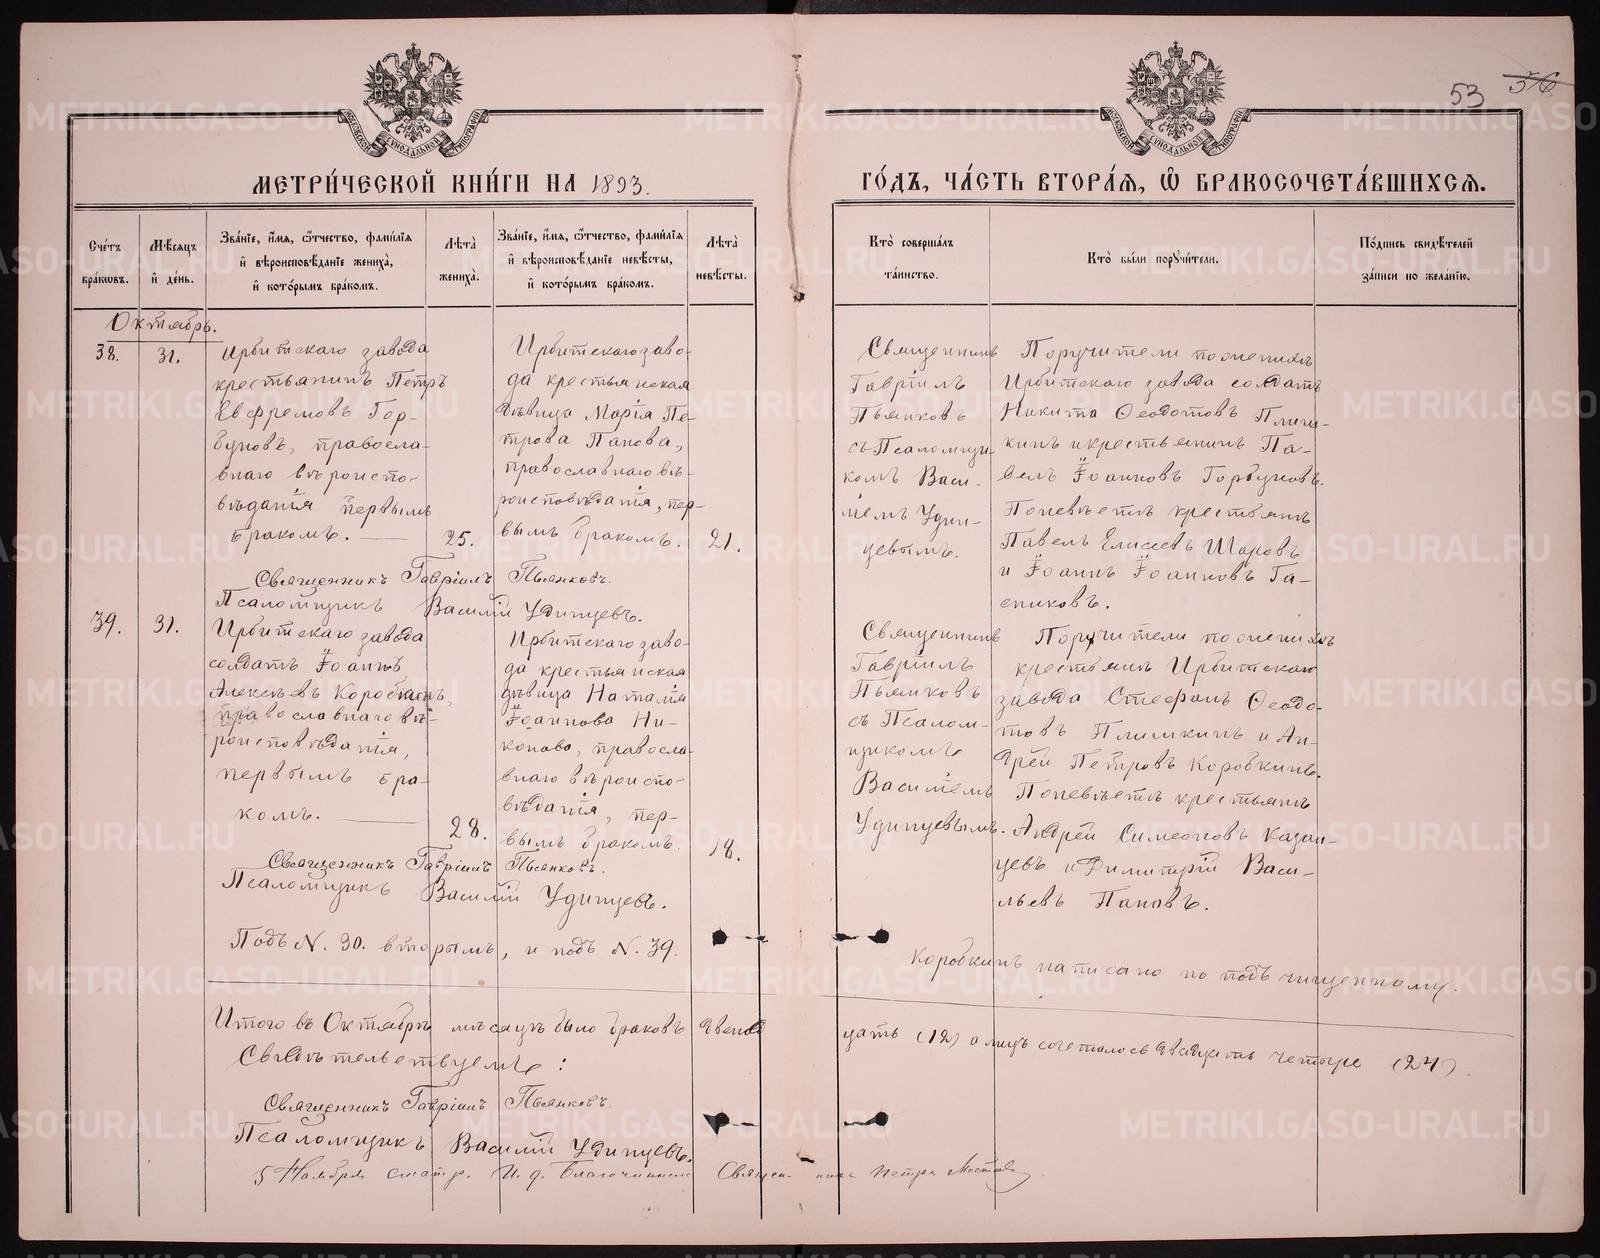 53 56
МОСКОВСКОЙ СѴНОДАЛЬНОЙ ТИПОГРАФІИ
МОСКОВСКОЙ СѴНОДАЛЬНОЙ ТИПОГРАФІИ
МЕТРИ́ЧЕСКОЙ КНИ́ГИ НА 1893.
ГО́ДЪ, ЧА́СТЬ ВТОРА́Я, Ѿ БРАКОСОЧЕТА́ВШИХСЯ.
Сче́тъ бра́кѡвъ.
Мѣ́сяцъ и҆ де́нь.
Зва́нїе, и҆́мя, ѻ҆́тчество, фами́лїя
и҆ вѣроисповѣ́данїе жениха̀,
и҆ кото́рымъ бра́комъ.
Лѣта̀ жениха̀.
Зва́нїе, и҆́мя, ѻ҆́тчество, фами́лїя
и҆ вѣроисповѣ́данїе невѣ́сты,
и҆ кото́рымъ бра́комъ.
Лѣта̀ невѣ́сты.
Кто̀ соверша́лъ
та́инство.
Кто̀ бы́ли порꙋчи́тели.
По́дпись свидѣ́телей
за́писи по жела́нїю.
Октябрь.
38.
31.
Ирбитскаго завода
крестьянинъ Петръ
Евфремовъ Гор-
буновъ, правосла-
внаго вѣроиспо-
вѣданія первымъ
бракомъ.
25.
Ирбитскаго заво-
да крестьянская
дѣвица Марія Пе-
трова Панова,
православнаго вѣ-
роисповѣданія, пер-
вымъ бракомъ.
21.
Священникъ
Гавріилъ
Пьянковъ
съ Псаломщи-
комъ Васи-
ліемъ Удин-
цевымъ.
Поручители по женихѣ
Ирбитскаго завода солдатъ
Никита Ѳеодотовъ Плиш-
кинъ и крестьянинъ Па-
велъ Іоанновъ Горбуновъ.
По невѣстѣ крестьянѣ
Павелъ Елисеевъ Шаровъ
и Іоаннъ Іоанновъ Га-
сниковъ.
Священникъ Гавріилъ Пьянковъ.
Псаломщикъ Василій Удинцевъ.
39.
31.
Ирбитскаго завода
солдатъ Іоаннъ
Алексѣевъ Коробкинъ,
православнаго вѣ-
роисповѣданія,
первымъ бра-
комъ.
28.
Ирбитскаго заво-
да крестьянская
дѣвица Наталія
Іоаннова Ни-
конова, правосла-
внаго вѣроиспо-
вѣданія, пер-
вымъ бракомъ.
18.
Священникъ
Гавріилъ
Пьянковъ
съ Псалом-
щикомъ
Василіемъ
Удинцевымъ.
Поручители по женихѣ
крестьянѣ Ирбитскаго
завода Стефанъ Ѳеодо-
товъ Плишкинъ и Ан-
дрей Петровъ Коробкинъ.
По невѣстѣ крестьянѣ
Андрей Симеоновъ Казан-
цевъ и Димитрій Васи-
льевъ Пановъ.
Священникъ Гавріилъ Пьянковъ.
Псаломщикъ Василій Удинцевъ.
Подъ N. 30. вторымъ, и подъ N. 39.
Коробкинъ написано по подъчищенному.
Итого въ Октябрѣ мѣсяцѣ было браковъ двенад
цать (12) а лицъ сочеталось двадцать четыре (24).
Свидѣтельствуемъ:
Священникъ Гавріилъ Пьянковъ.
Псаломщикъ Василій Удинцевъ.
5 Ноября смотр. И. д. Благочиннаго Священникъ Петръ